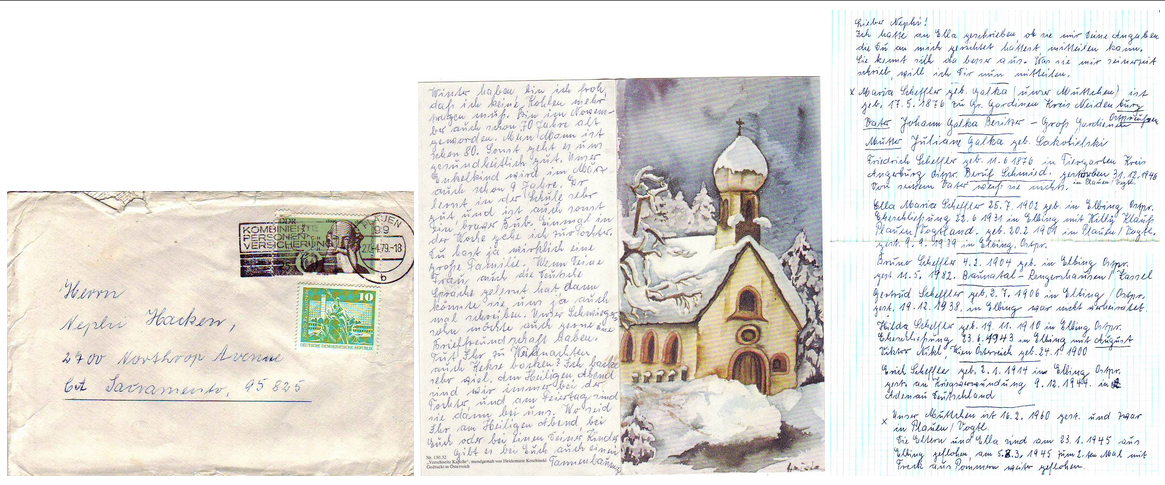 DDR
KOMBINIERTE
PERSONEN-
VERSICHERUNG
PLAUEN
99
27.-4.79.-18
b
10
DEUTSCHE DEMOKRATISCHE REPUBLIK
Herrn
Nephi Hacken,
2700 Northrop Avenue
Cit Sacramento, 95825
Winter haben bin ich froh,
daß ich keine Kohlen mehr
tragen muß. Bin im Novem-
ber auch schon 70 Jahre alt
geworden. Mein Mann ist
schon 80. Sonst geht es uns
gesundheitlich gut. Unser
Enkelkind wird im März
auch schon 9 Jahre. Er
lernt in der Schule sehr
gut und ist auch sonst
ein braver Bub. Einmal in
der Woche gehe ich zur Tochter.
Du hast ja wirklich eine
große Familie. Wenn Deine
Frau auch die Deutsche
Sprache gelernt hat dann
könnte sie uns ja auch
mal schreiben. Unser Schwieger-
sohn möchte auch gerne eine
Brieffreundschaft haben.
Tut Ihr zu Weihnachten
auch Kekse backen? Ich backe
sehr viel, am Heiligen Abend
sind wir immer bei der
Tochter und am Feiertag sind
sie dann bei uns. Wo seid
Ihr am Heiligen Abend, bei
Euch oder bei einem Deiner Kinder
gibt es bei Euch auch einen
Tannenbaum
Nr. 130.32
„Verschneite Kapelle", mundgemalt von
Gedruckt in Österreich
Lieber Nephi!
Ich hatte an Ella geschrieben, ob sie mir Deine Angaben
die Du an mich gerichtet hattest, mitteilen kann.
Sie kennt sich da besser aus. Was sie mir seinerzeit
schrieb, will ich Dir nun mitteilen.
x Maria Scheffler geb. Galka (unser Muttchen) ist
geb. 17.5.1876 zu Gr. Gardienen Kreis Neidenburg
Ostpreußen
Vater Johann Galka Besitzer - Groß Gardienen
Mutter Juliane Galka geb. Sakobielski
Friedrich Scheffler geb. 11.6 1876 in Tiergarten Kreis
Angerburg Ostpr. Beruf Schmied. gestorben 31.12.1946
in Plauen/Vogtl.
Von seinem Vater weiß sie nichts.
Ella Maria Scheffler 25.7. 1902 geb. in Elbing Ostpr.
Eheschließung 22.6 1931 in Elbing mit Willy
Plauen/Vogtland. geb. 20.2 1909 in Plauen/Vogtl.
gest. 9.9.1939 in Elbing. Ostpr.
Bruno Scheffler 4.2. 1904 geb. in Elbing Ostpr.
gest 11.5. 1982. Baunatal-Rengershausen/Kassel
Gertrud Scheffler geb. 2.7. 1906 in Elbing/Ostpr.
gest. 19.12.1938. in Elbing war nicht verheiratet.
Hilda Scheffler geb. 19.11.1910 in Elbing Ostpr.
Eheschließung 23.6.1943 in Elbing mit August
Viktor Nikl Wien Österreich geb. 24.1. 1900
Erich Scheffler geb. 2.1.1914 in Elbing Ostpr.
gest. an Kriegsverwundung 9.12.1944. in
Adenau Deutschland
x Unser Muttchen ist 16.2. 1960 gest. und zwar
in Plauen/Vogtl.
Die Eltern und Ella sind am 23.1. 1945 aus
Elbing geflohen, am 5.8.3, 1945 zum 2.ten Mal mit
Treck aus Pommern weiter geflohen.